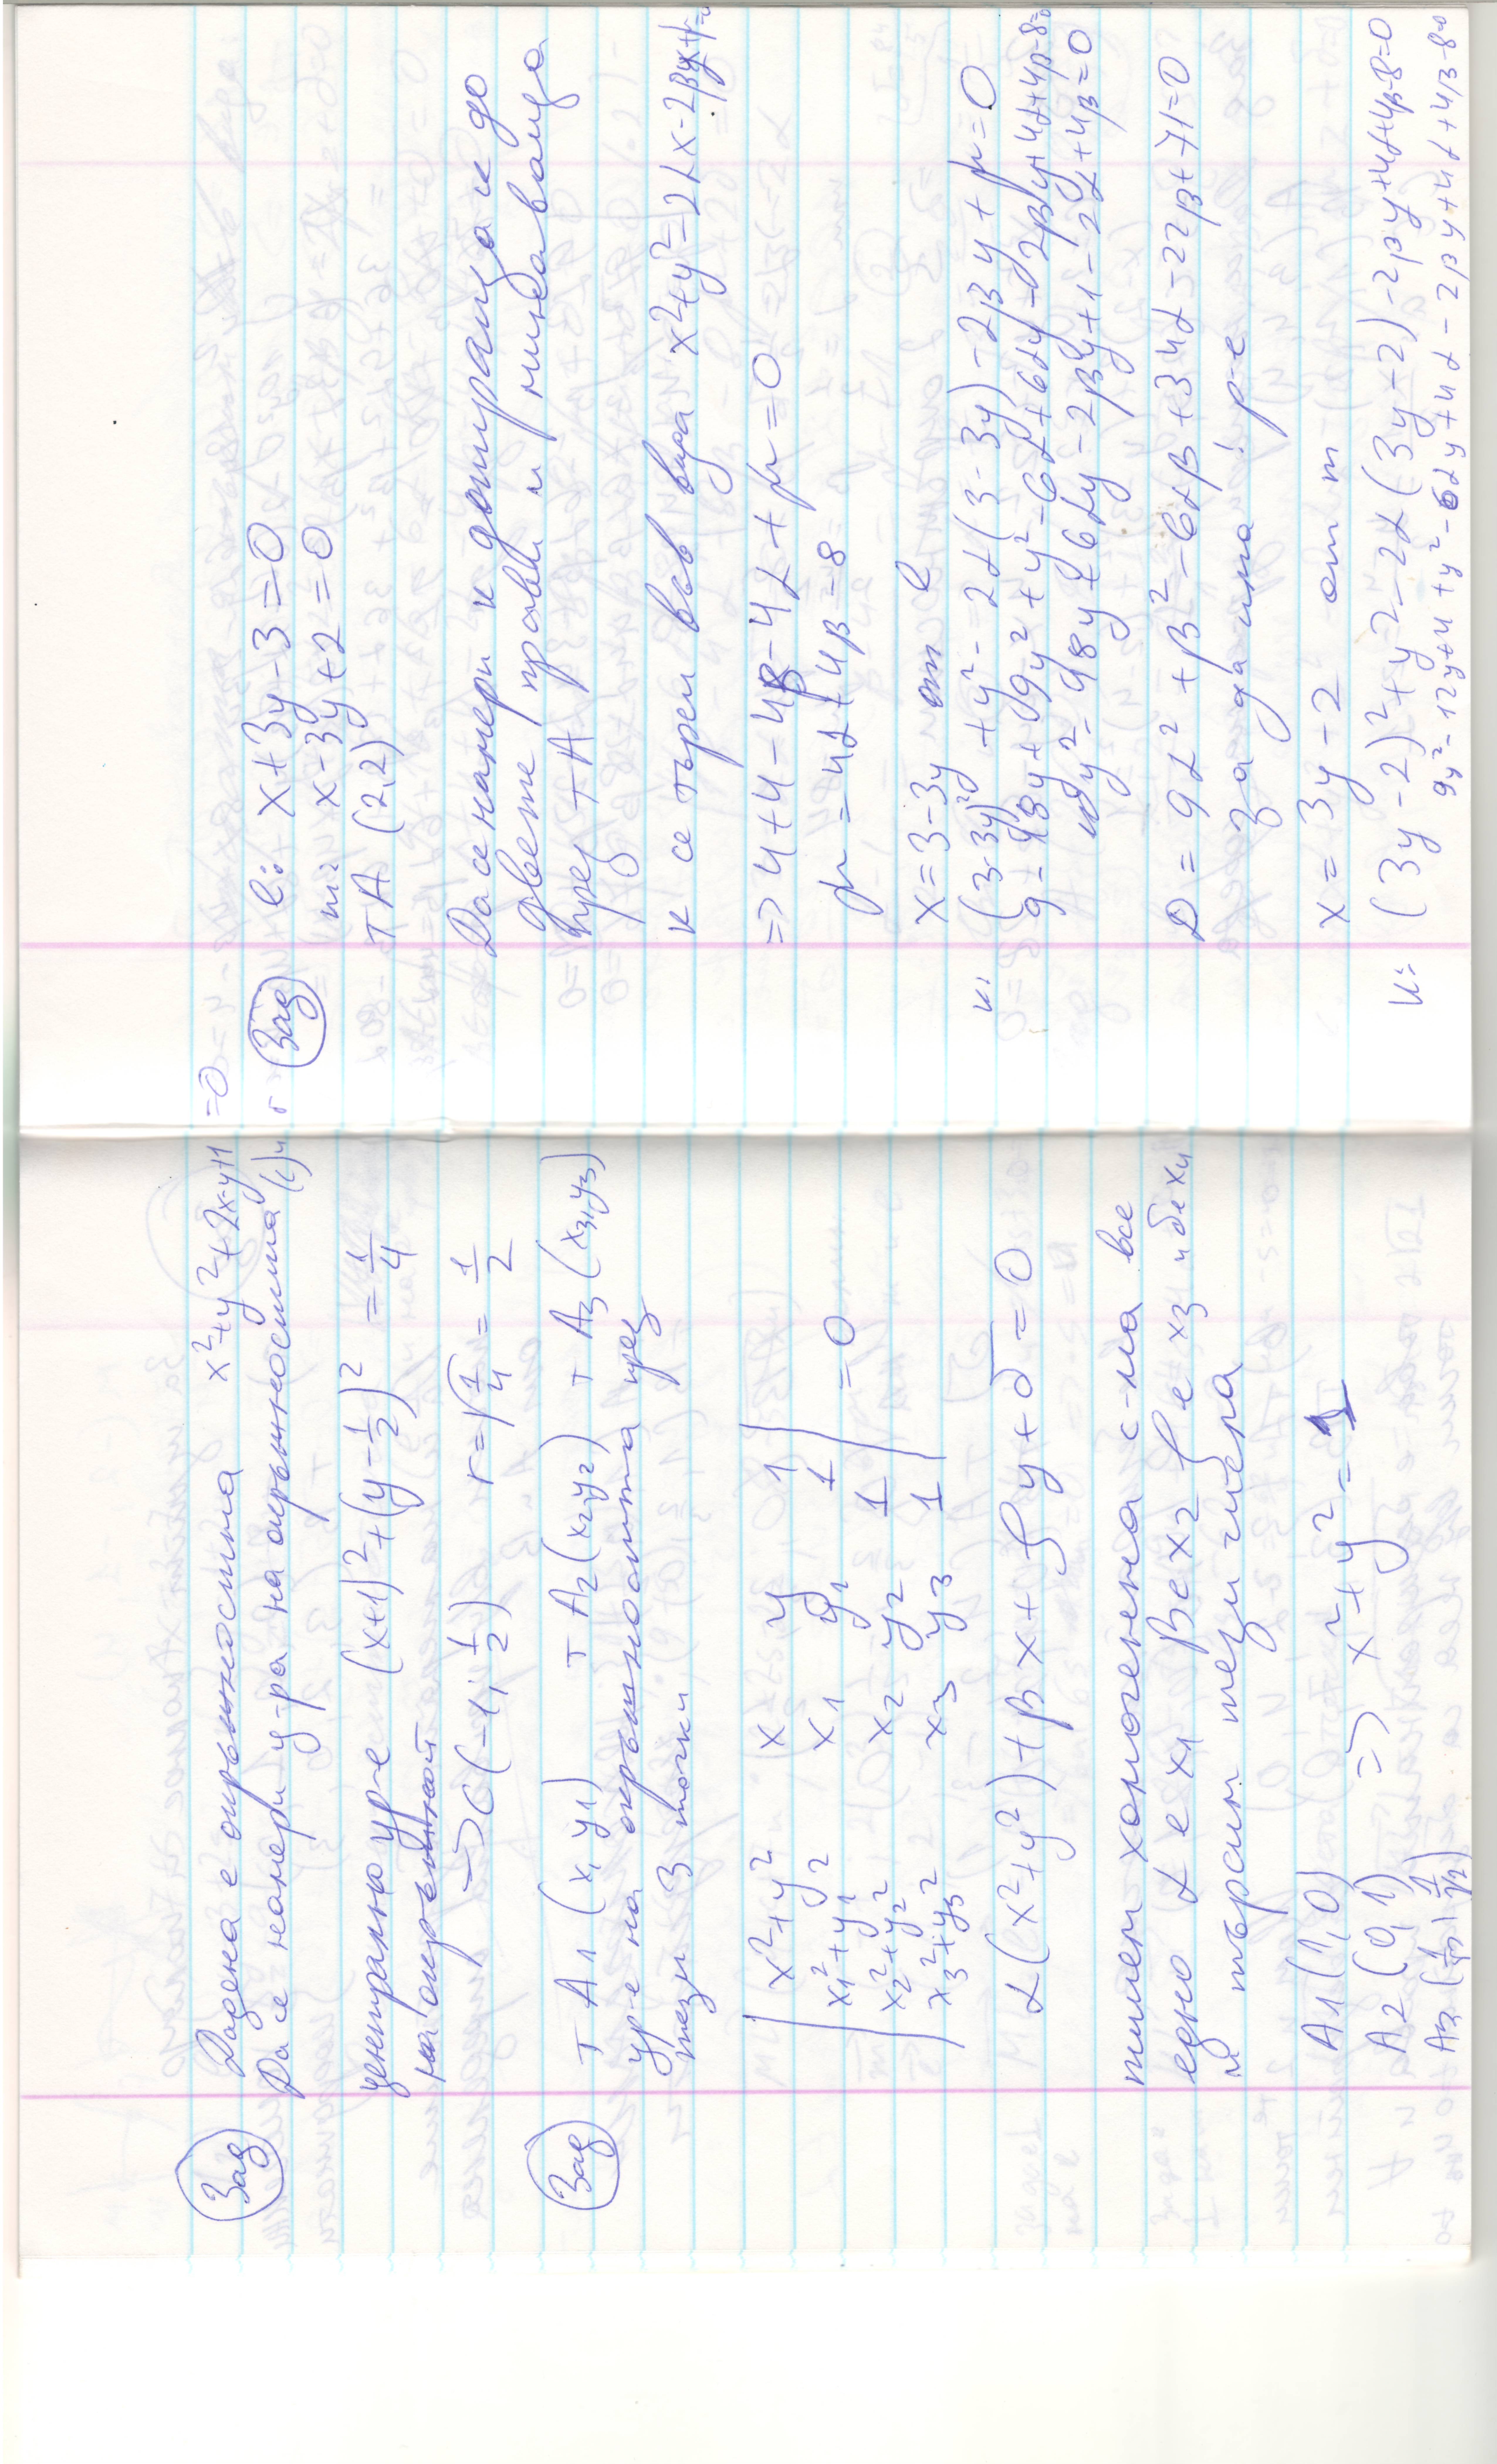 Зад Дадена е окръжността x²+y²+2x-y+1=0
Да се намери ц-ра на окръжността (c) и r
централно ур-е (x+1)²+(y-1/2)² = 1/4
на окръжност
→ C(-1; 1/2) r=√1/4 = 1/2
Зад т A1 (x1 y1) т A2 (x2 y2) т A3 (x3, y3)
ур-е на окръжността през
тези 3 точки
x²+y² x y 1
x1²+y1² x1 y1 1
x2²+y2² x2 y2 1 =0
x3²+y3² x3 y3 1
α(x²+y²)+βx+ρy+δ=0
пишем хомогенна с-ма все
едно α е x1 β е x2 ρ е x3 и δ е x4
и търсим тези числа
A1 (1, 0)
A2 (0, 1) => x²+y²=1
A3 (1/√2, 1/√2)
Зад l: x+3y-3=0
m: x-3y+2=0
т A (2,2)
Да се намери к допираща се до
двете прави и минаваща
през т A
к се търси във вида x²+y²-2αx-2βy+μ=0
=> 4+4-4β-4α+μ=0
μ=4α+4β-8
x=3-3y от l
к: (3-3y)²+y²-2α(3-3y)-2βy+μ=0
9-18y+9y²+y²-6α+6αy-2βy+4α+4β-8=0
10y²-18y+6αy-2βy+1-2α+4β=0
D = 9α²+β²-6αβ+34α-22β+71=0
за да има 1 р-е
x=3y-2 от m
к: (3y-2)²+y²-2α(3y-2)-2βy+4α+4β-8=0
9y²-12y+4+y²-6αy+4α-2βy+4α+4β-8=0